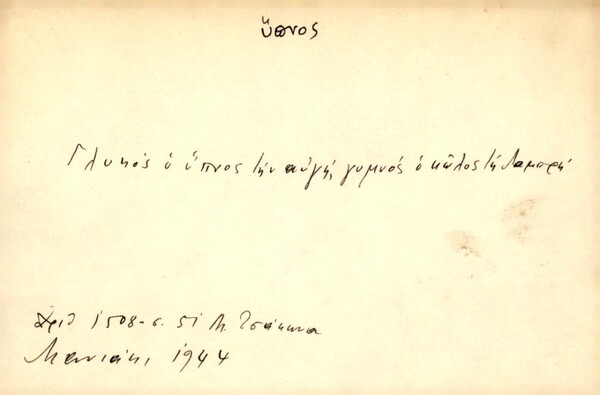 ὕπνος
Γλυκός ὁ ὕπνος τήν αὐγή, γυμνός ὁ κῶλος τή Λαμπρή
Ἀριθ 1508 - σ. 51 Μ. Τσάκωνα
Μανιάκι, 1944